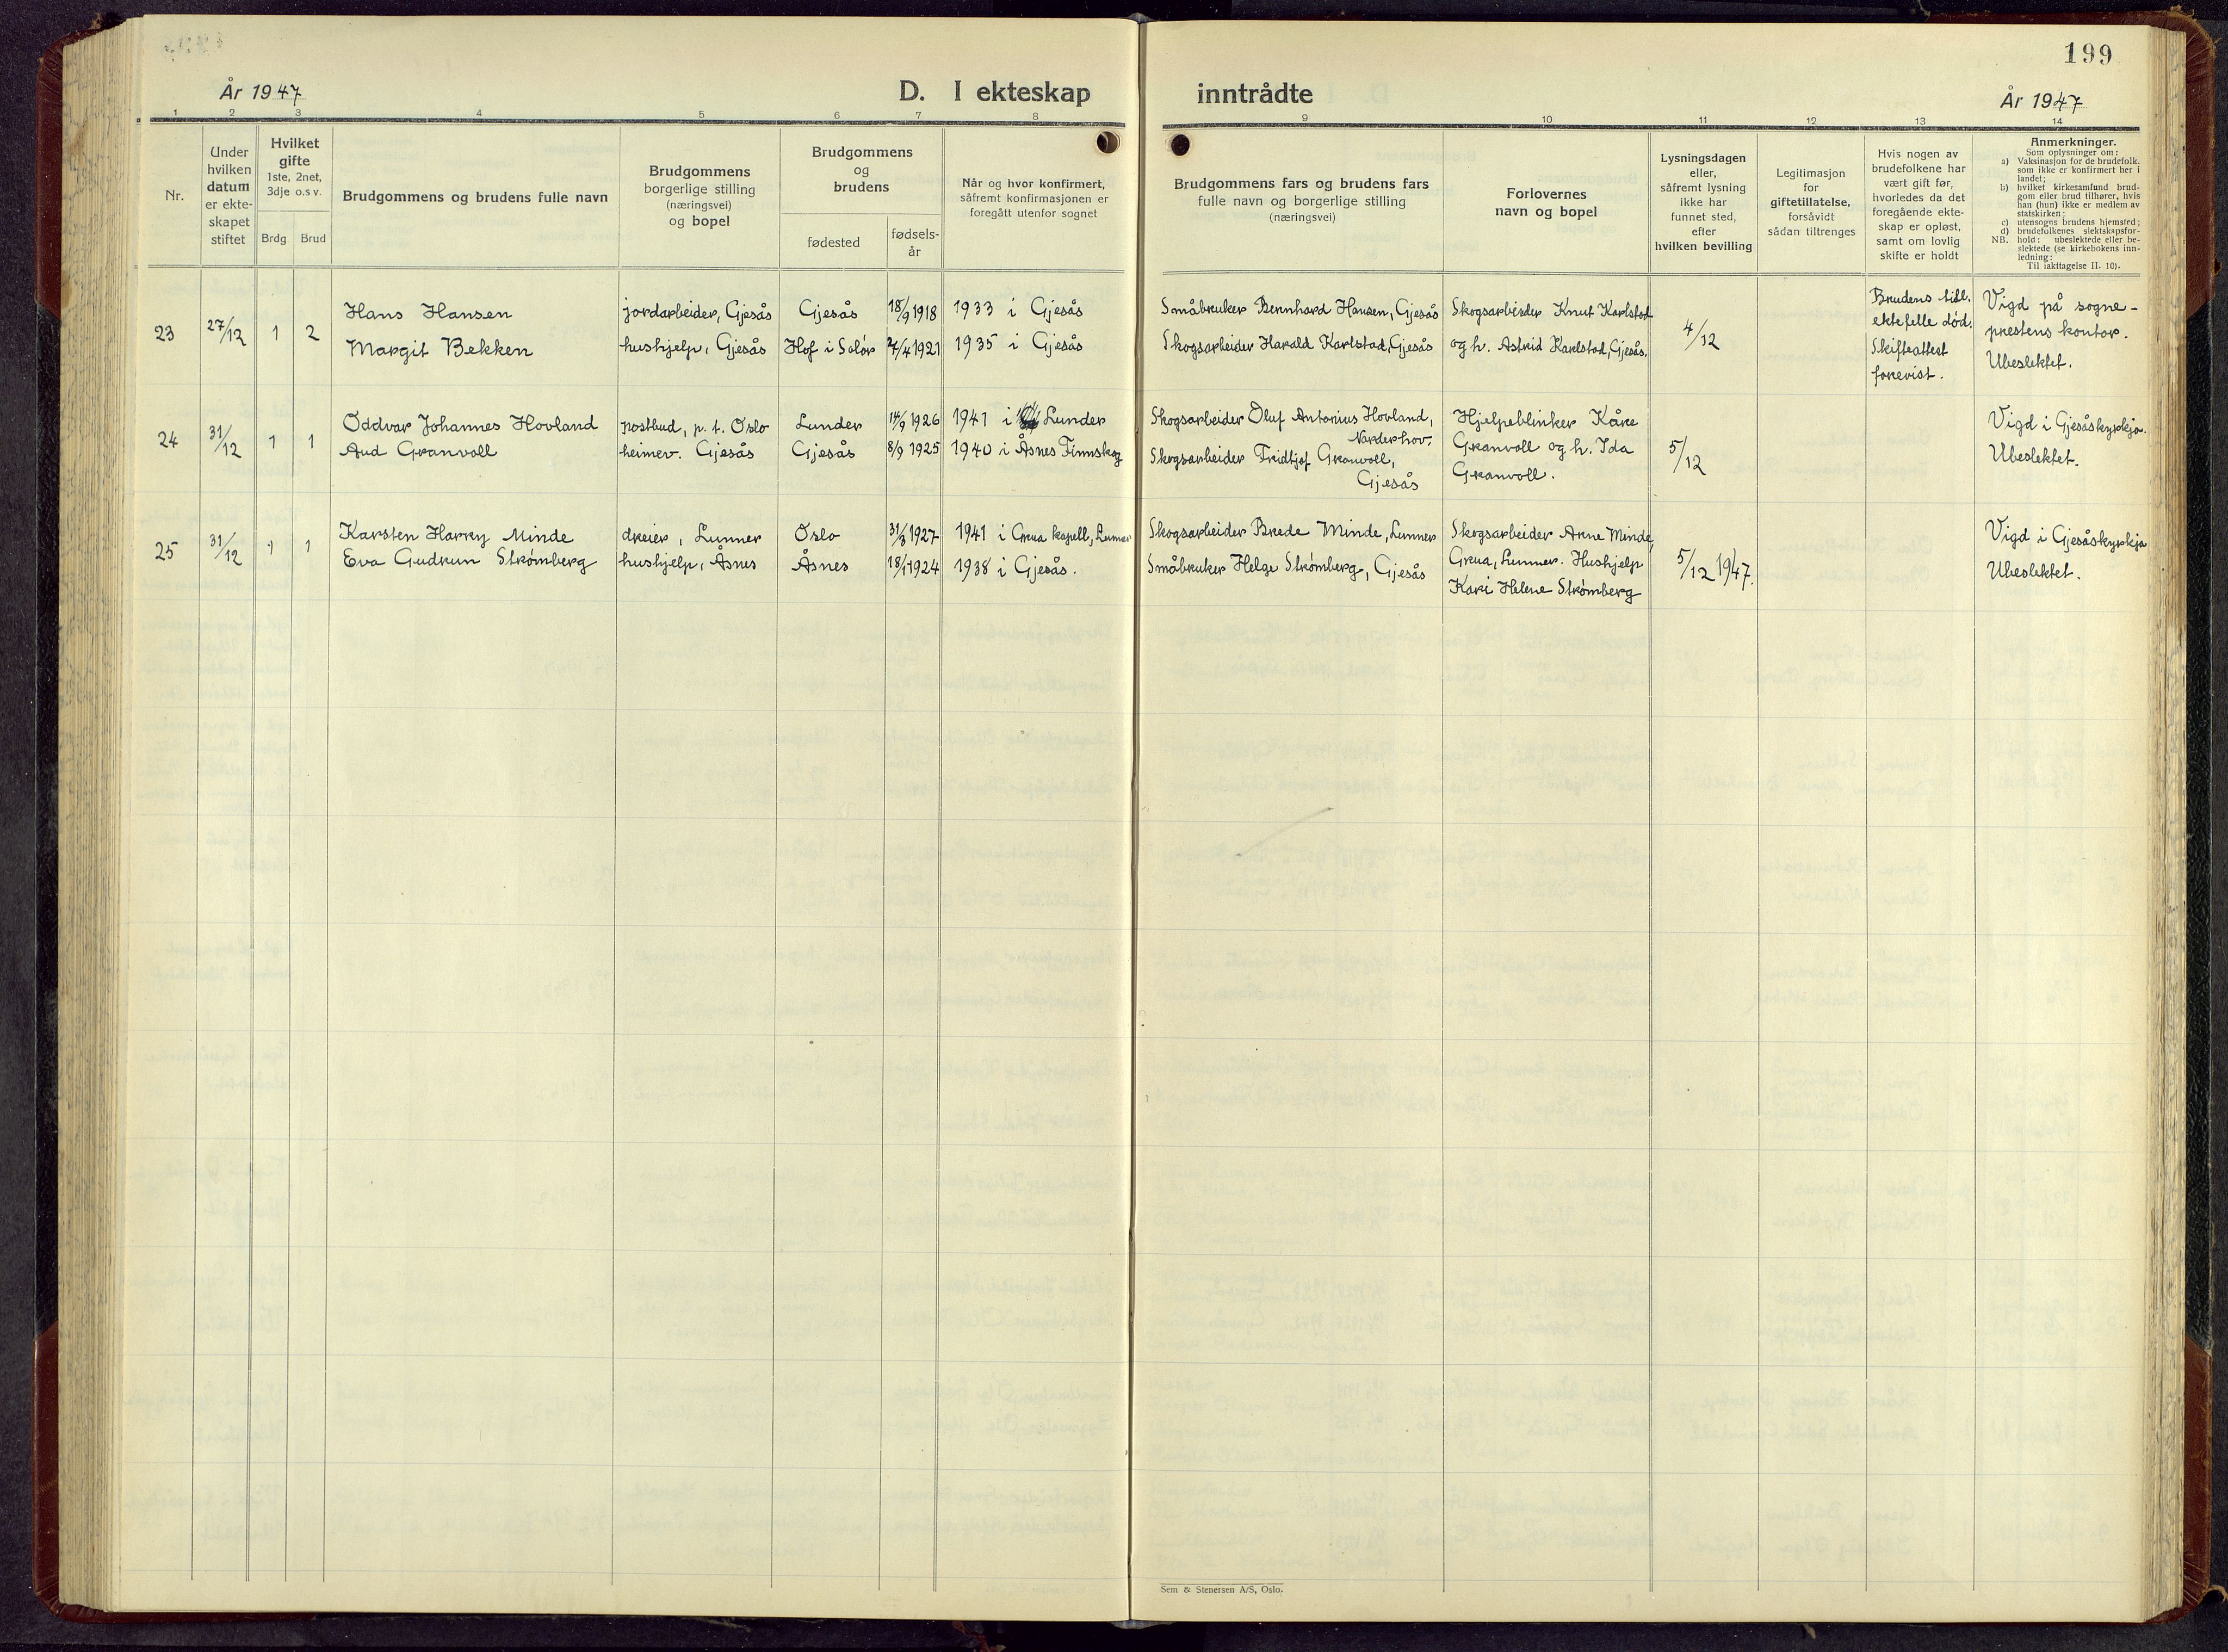 199
År 1947
D. I ekteskap inntrådte
År 1947
1 2 3 4 5 6 7 8 9 10 11 12 13 14
Nr.
Under
hvilken
datum
er ekte-
skapet
stiftet
Hvilket
gifte
1ste, 2net,
3dje o.s v.
Brdg Brud
Brudgommens og brudens fulle navn
Brudgommens
borgerlige stilling
(næringsvei)
og bopel
Brudgommens
og
brudens
fødested
fødsels-
år
Når og hvor konfirmert,
såfremt konfirmasjonen er
foregått utenfor sognet
Brudgommens fars og brudens fars
fulle navn og borgerlige stilling
(næringsvei)
Forlovernes
navn og bopel
Lysningsdagen
eller,
såfremt lysning
ikke har
funnet sted,
efter
hvilken bevilling
Legitimasjon
for
giftetillatelse,
forsåvidt
sådan tiltrenges
Hvis nogen av
brudefolkene har
vært gift før,
hvorledes da det
foregående ekte-
skap er opløst,
samt om lovlig
skifte er holdt
Anmerkninger.
Som oplysninger om:
a) Vaksinasjon for de brudefolk.
som ikke er konfirmert her i
landet;
b) hvilket kirkesamfund brud-
gom eller brud tilhører, hvis
han (hun) ikke er medlem av
statskirken;
c) utensogns brudens hjemsted;
d) brudefolkenes slektskapsfor-
NB. hold: ubeslektede eller be-
slektede (se kirkebokens inn-
ledning:
Til iakttagelse II. 10).
23
27/12
1 2
Hans Hansen
Margit Bekken
jordarbeider, Gjesås
hushjelp, Gjesås
Gjesås
Hof i Solør
18/9 1918
27/4 1921
1933 i Gjesås
1935 i Gjesås
Småbruker Bernhard Hansen, Gjesås
Skogsarbeider Harald Karlstad, Gjesås
Skogsarbeider Knut Karlstad
og h. Astrid Karlstad, Gjesås.
4/12
Brudens tidl.
ektefelle død.
Skifteattest
forevist.
Vigd på sogne-
prestens kontor.
Ubeslektet.
24
31/12
1 1
Oddvar Johannes Hovland
Aud Granvoll
postbud, p. t. Oslo
heimev. Gjesås
Lunder
Gjesås
14/9 1926
8/9 1925
1941 i Lunder
1940 i Åsnes Finnskog
Skogsarbeider Oluf Antonius Hovland,
Norderhov.
Skogsarbeider Fridtjof Granvoll,
Gjesås
Hjelpeblinker Kåre
Granvoll og h. Ida
Granvoll.
5/12
Vigd i Gjesåskyrkja.
Ubeslektet.
25
31/12
1 1
Karsten Harry Minde
Eva Gudrun Strømberg
dreier, Lunner
hushjelp, Åsnes
Oslo
Åsnes
31/3 1927
18/1 1924
1941 i Grua kapell, Lunner
1938 i Gjesås.
Skogsarbeider Brede Minde, Lunner
Småbruker Helge Strømberg, Gjesås
Skogsarbeider Arne Minde,
Grua, Lunner. Hushjelp
Kari Helene Strømberg
5/12 1947.
Vigd i Gjesåskyrkja
Ubeslektet.
Sem & Stenersen A/S, Oslo.